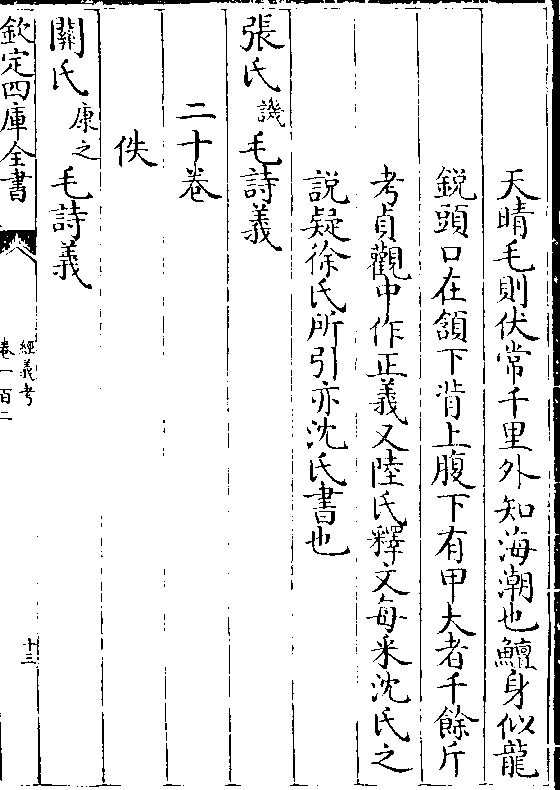 天晴毛則伏常千里外知海潮也鱣身似龍
銳頭口在頷下背上腹下有甲大者千餘斤
考貞觀中作正義又陸氏釋文每采沈氏之
說疑徐氏所引亦沈氏書也
張氏譏毛詩義
二十卷
佚
關氏康之毛詩義
欽定四庫全書
經義考
卷一百二
十三